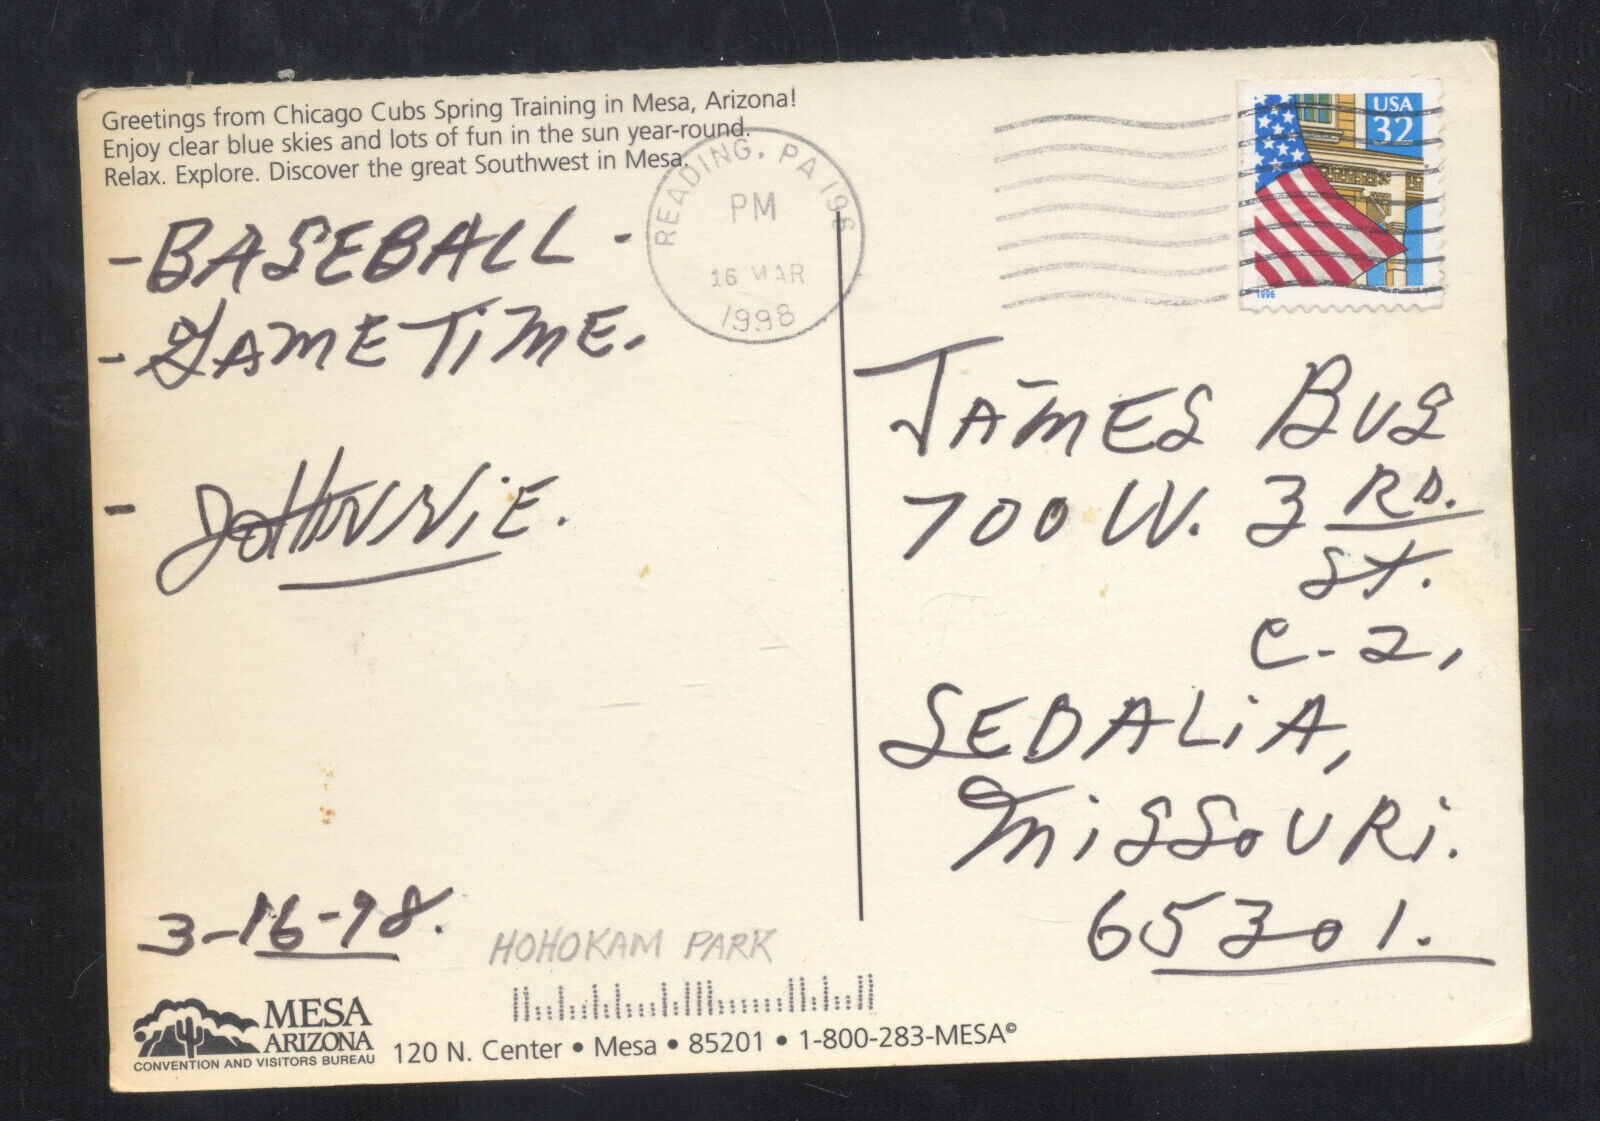 Greetings from Chicago Cubs Spring Training in Mesa, Arizona!
Enjoy clear blue skies and lots of fun in the sun year-round.
Relax. Explore. Discover the great Southwest in Mesa.
READING, PA 196
PM
16 MAR
1998
USA
32
1996
- BASEBALL -
- GAME TiME.
- JOHNNiE.
3-16-98.
HOHOKAM PARK
JAMES BUS
700 W. 3 RD.
St.
C-2,
SEDALiA,
MiSSOURi.
65301.
MESA
ARIZONA
CONVENTION AND VISITORS BUREAU
120 N. Center • Mesa • 85201 • 1-800-283-MESA©